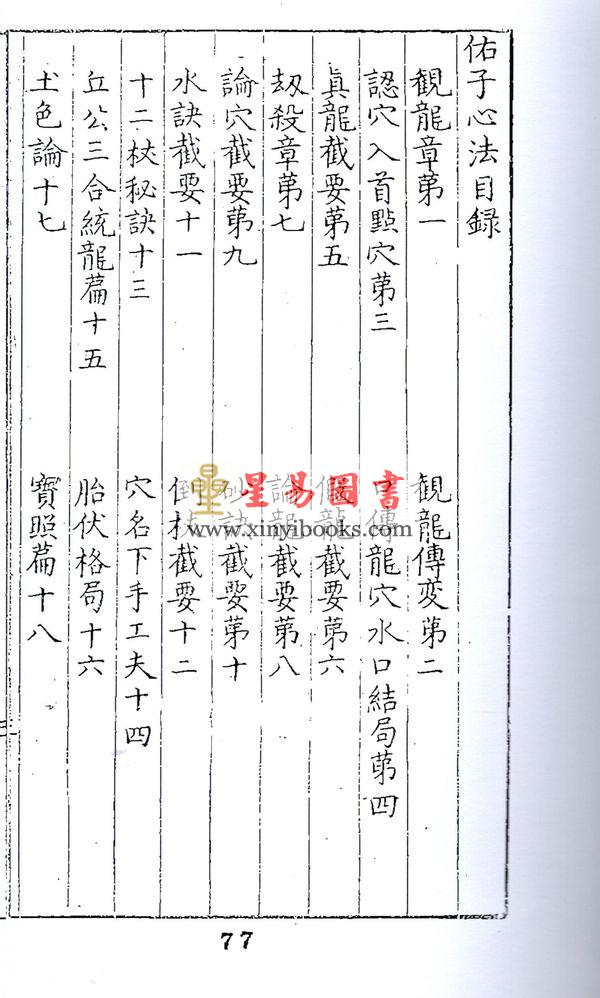 佑子心法目錄
觀龍章第一 觀龍傳変第二
認穴入首點穴第三 口傳龍穴水口結局第四
真龍截要第五 假龍截要第六
刼殺章第七 論龍截要第八
論穴截要第九 砂訣截要第十
水訣截要十一 倒杖截要十二
十二杖秘訣十三 穴名下手工夫十四
丘公三合統龍篇十五 胎伏格局十六
土色論十七 寶照篇十八
星易圖書
www.xinyibooks.com
77